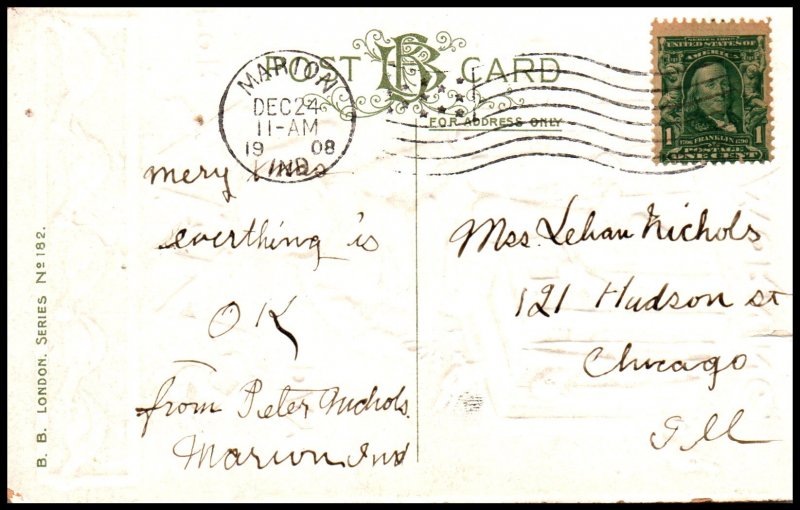 POST CARD
BB
FOR ADDRESS ONLY
MARION
DEC 24
11-AM
19 08
IND.
SERIES 1902
UNITED STATES OF
AMERICA
1 1
1706 FRANKLIN 1790
POSTAGE
ONE CENT
mery Xmas
everthing is
OK
from Peter Nichols
Marion Ind
Mss. Nichols
121 Hudson st
Chicago
Ill
B. B. LONDON. SERIES No 182.